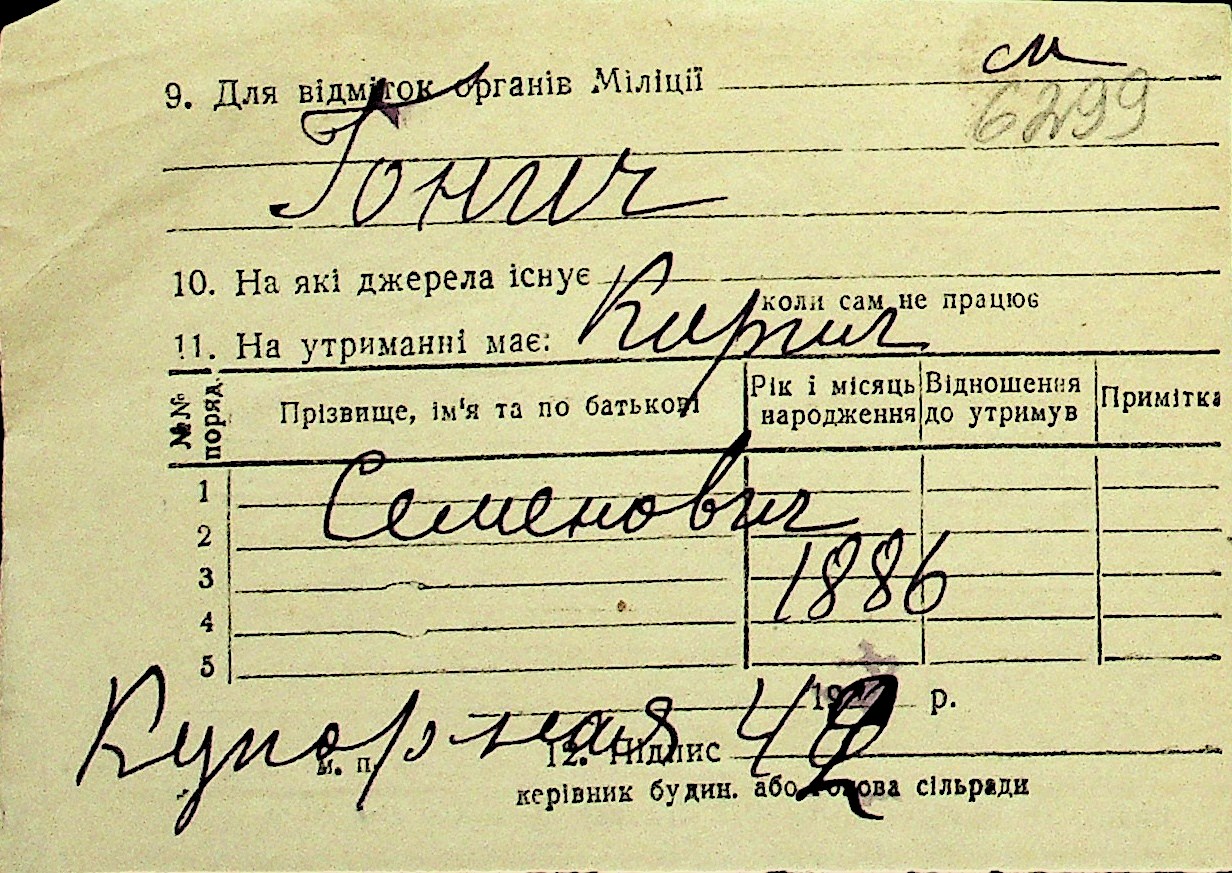 см
9. Для відміток органів Міліції
6299
Гонич
10. На які джерела існує
коли сам не працює
11. На утриманні має:
Кирил
№№ поряд.
Прізвище, ім'я та по батькові
Рік і місяць народження
Відношення до утримув
Примітка
1
Семенович
2
1886
3
4
5
19 р.
Купорная 42
м. п.
12. Підпис
керівник будин. або голова сільради